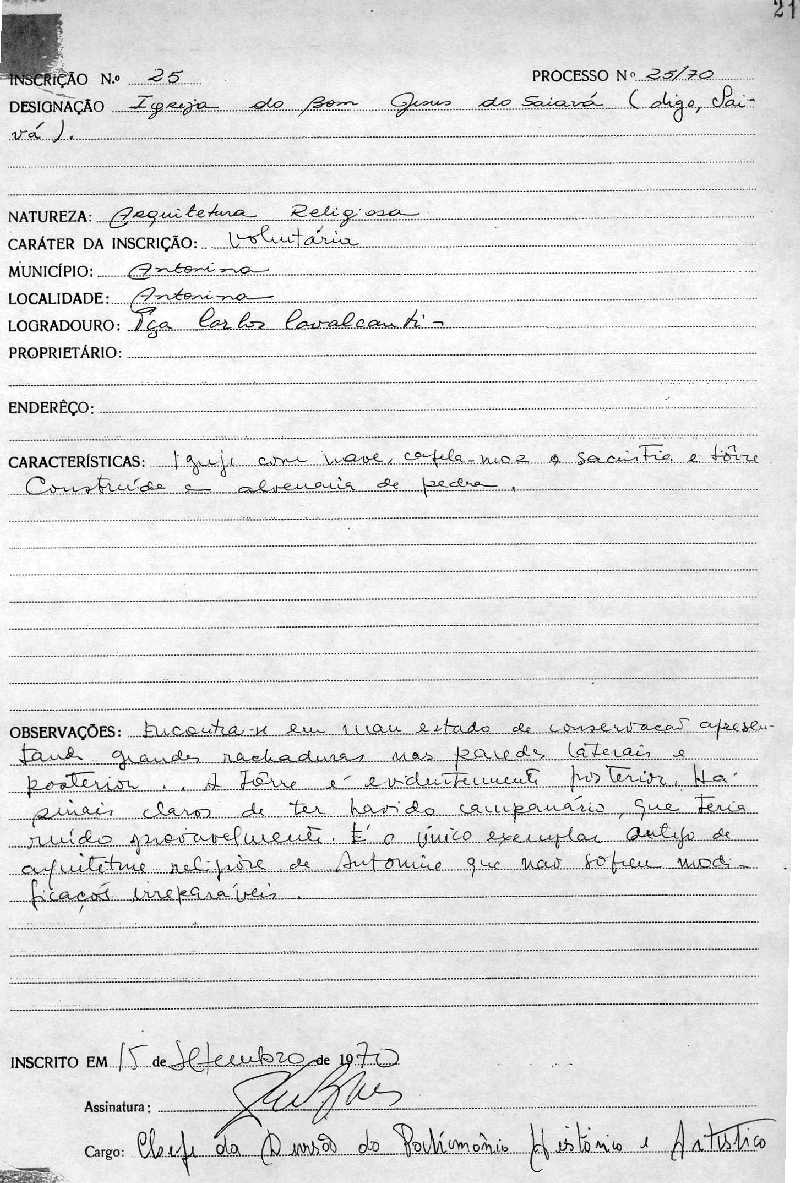 21
INSCRIÇÃO N.º 25 PROCESSO Nº 25/70
DESIGNAÇÃO Igreja do Bom Jesus do Saiavá (digo, Sai-
vá).
NATUREZA: Arquitetura Religiosa
CARÁTER DA INSCRIÇÃO: Voluntária
MUNICÍPIO: Antonina
LOCALIDADE: Antonina
LOGRADOURO: Pça Carlos Cavalcanti -
PROPRIETÁRIO:
ENDERÊÇO:
CARACTERÍSTICAS: Igreja com nave, capela-mor e sacristia e tôrre
Construída e alvenaria de pedra.
OBSERVAÇÕES: Encontra-se em mau estado de conservação apresen-
tando grandes rachaduras nas paredes laterais e
posterior.. A tôrre é evidentemente posterior. Há
sinais claros de ter havido campanário, que teria
ruído provavelmente. É o único exemplar antigo de
arquitetura religiosa de Antonina que não sofreu modi-
ficações irreparáveis.
INSCRITO EM 15 de Setembro de 1970
Assinatura:
Cargo: Chefe da Divisão do Patrimônio Histórico e Artístico